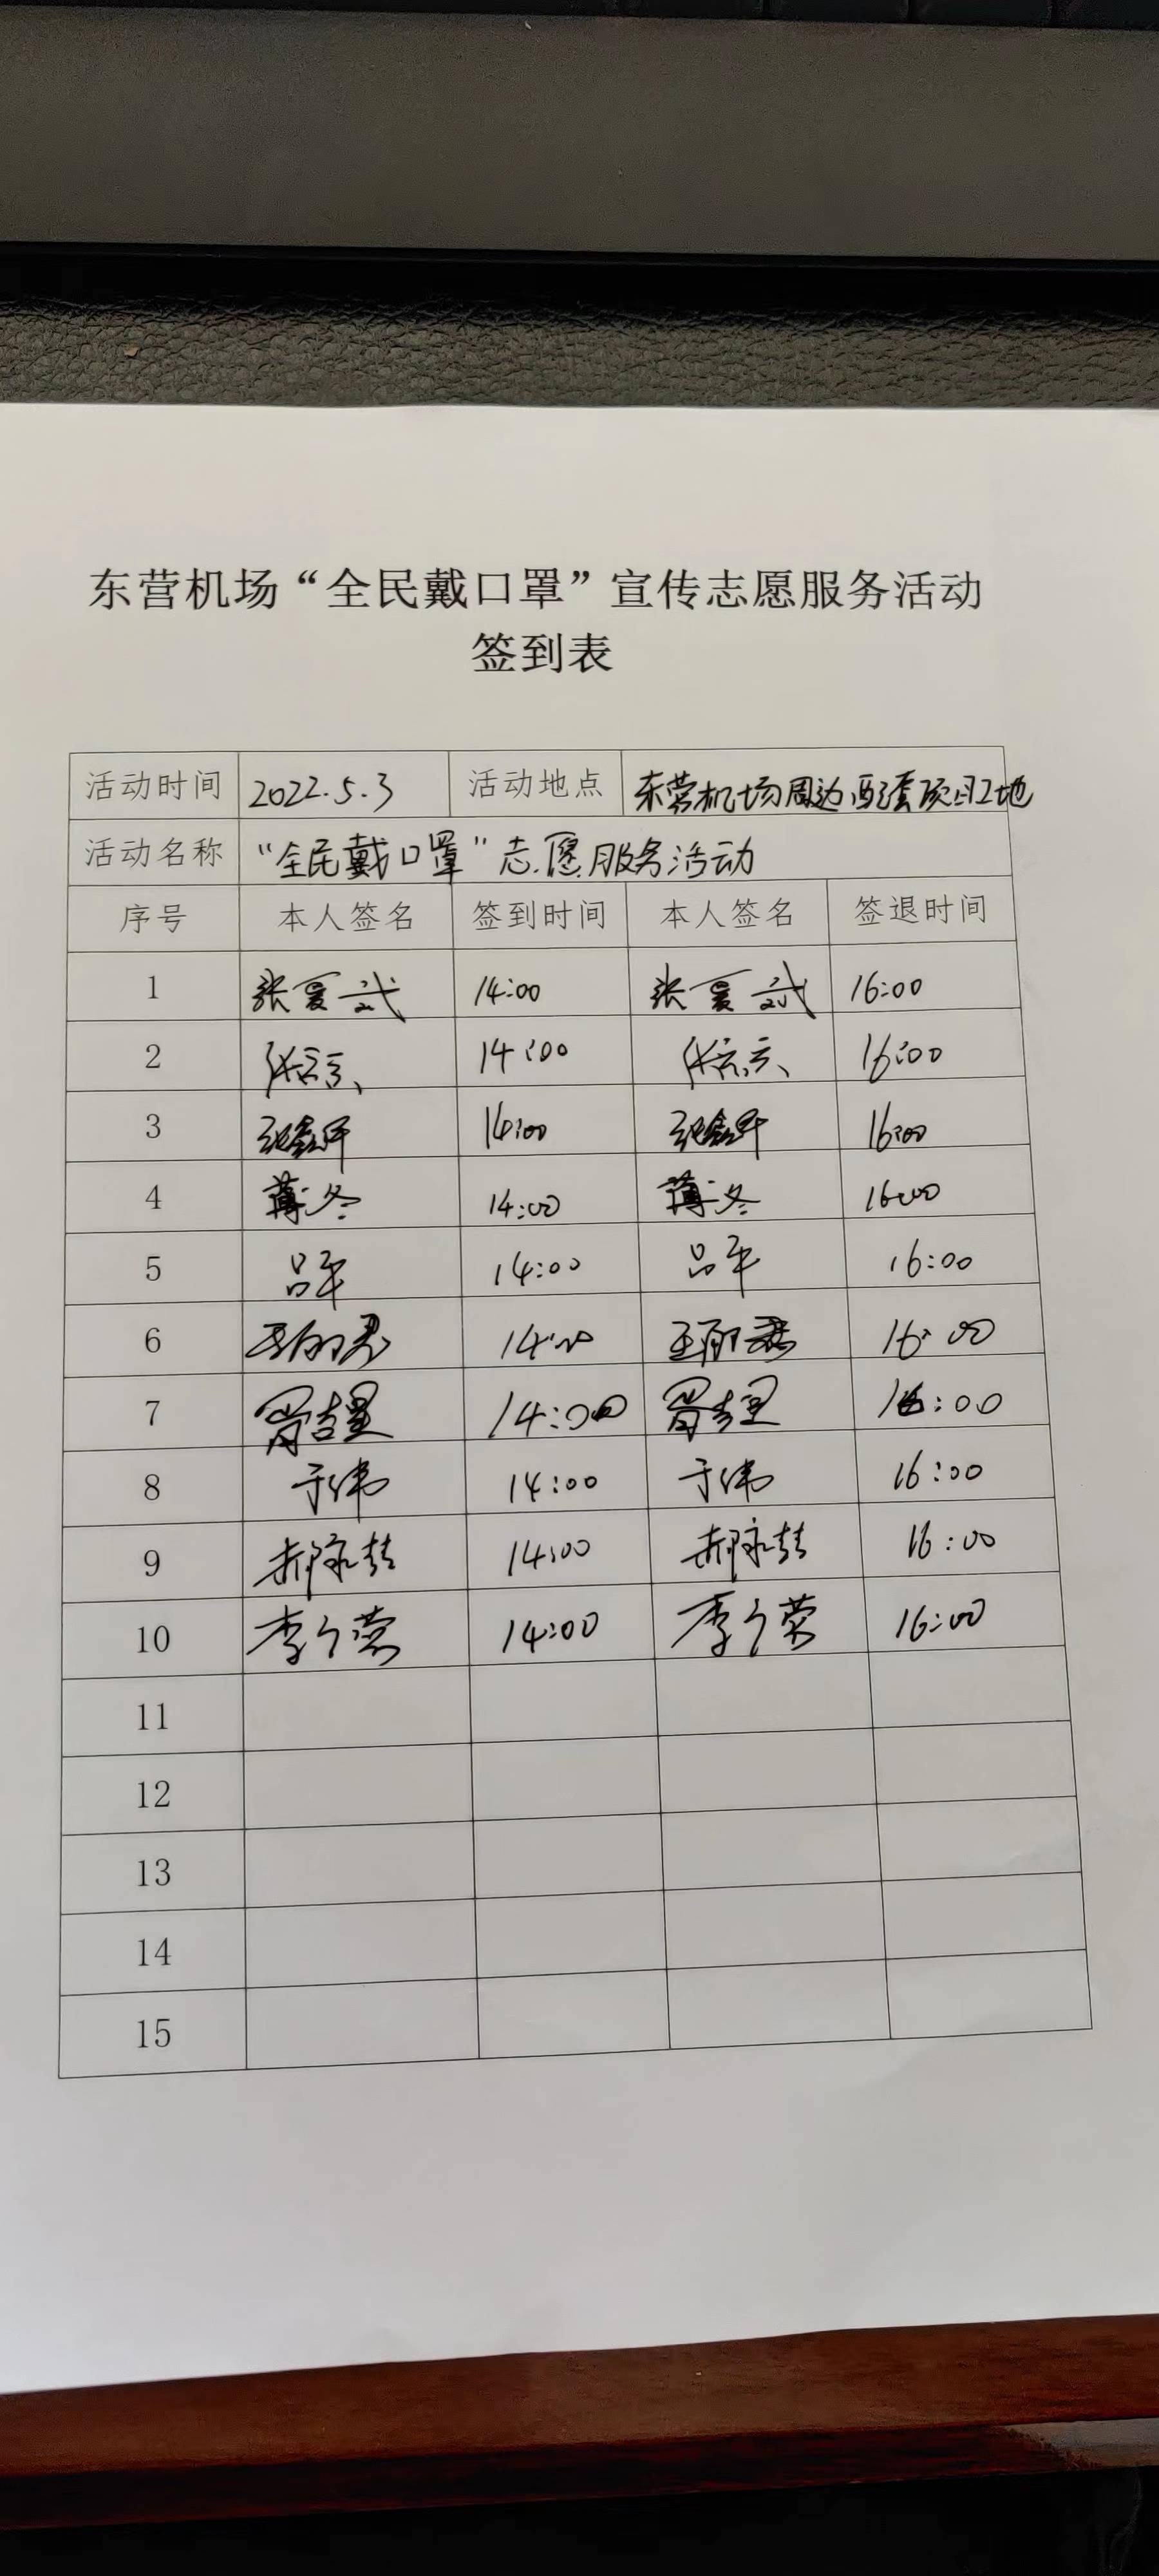 东营机场“全民戴口罩”宣传志愿服务活动
签到表
活动时间 2022.5.3 活动地点 东营机场周边配套项目工地
活动名称 “全民戴口罩”志愿服务活动
序号 本人签名 签到时间 本人签名 签退时间
1 张夏斌 14:00 张夏斌 16:00
2 14:00 16:00
3 14:00 16:00
4 薄冬 14:00 薄冬 16:00
5 吕平 14:00 吕平 16:00
6 14:00 16:00
7 14:00 16:00
8 于伟 14:00 于伟 16:00
9 郝永喆 14:00 郝永喆 16:00
10 14:00 16:00
11
12
13
14
15